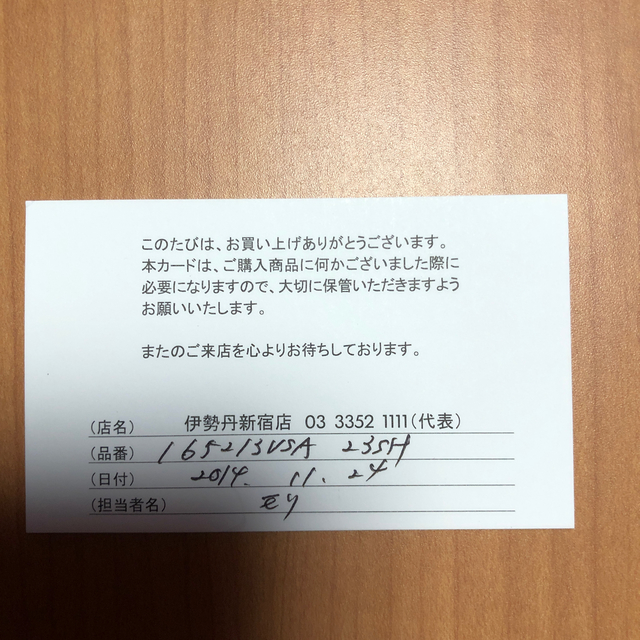 このたびは、お買い上げありがとうございます。
本カードは、ご購入商品に何かございました際に
必要になりますので、大切に保管いただきますよう
お願いいたします。
またのご来店を心よりお待ちしております。
(店名) 伊勢丹新宿店 03 3352 1111(代表)
(品番) 165213VSA 235H
(日付) 2014. 11. 24
(担当者名) モリ